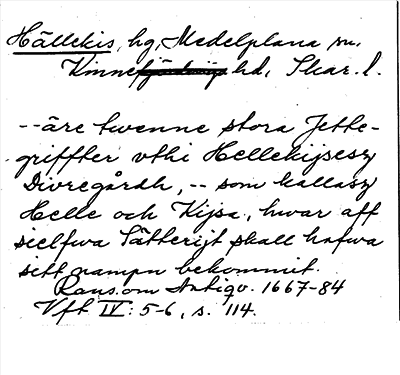 Hällekis, hg, Medelplana sn.
Kinne hd, Skar. l.
-- äre twenne stora Jette-
griffter vthi Hellekijsesz
Diuregårdh, -- som kallasz
Helle och Kijsa, hwar aff
sielfwa Sätterijt skall hafwa
sitt nampn bekommit.
Rans. om Antiqv. 1667-84
Vft IV: 5-6, s. 114.